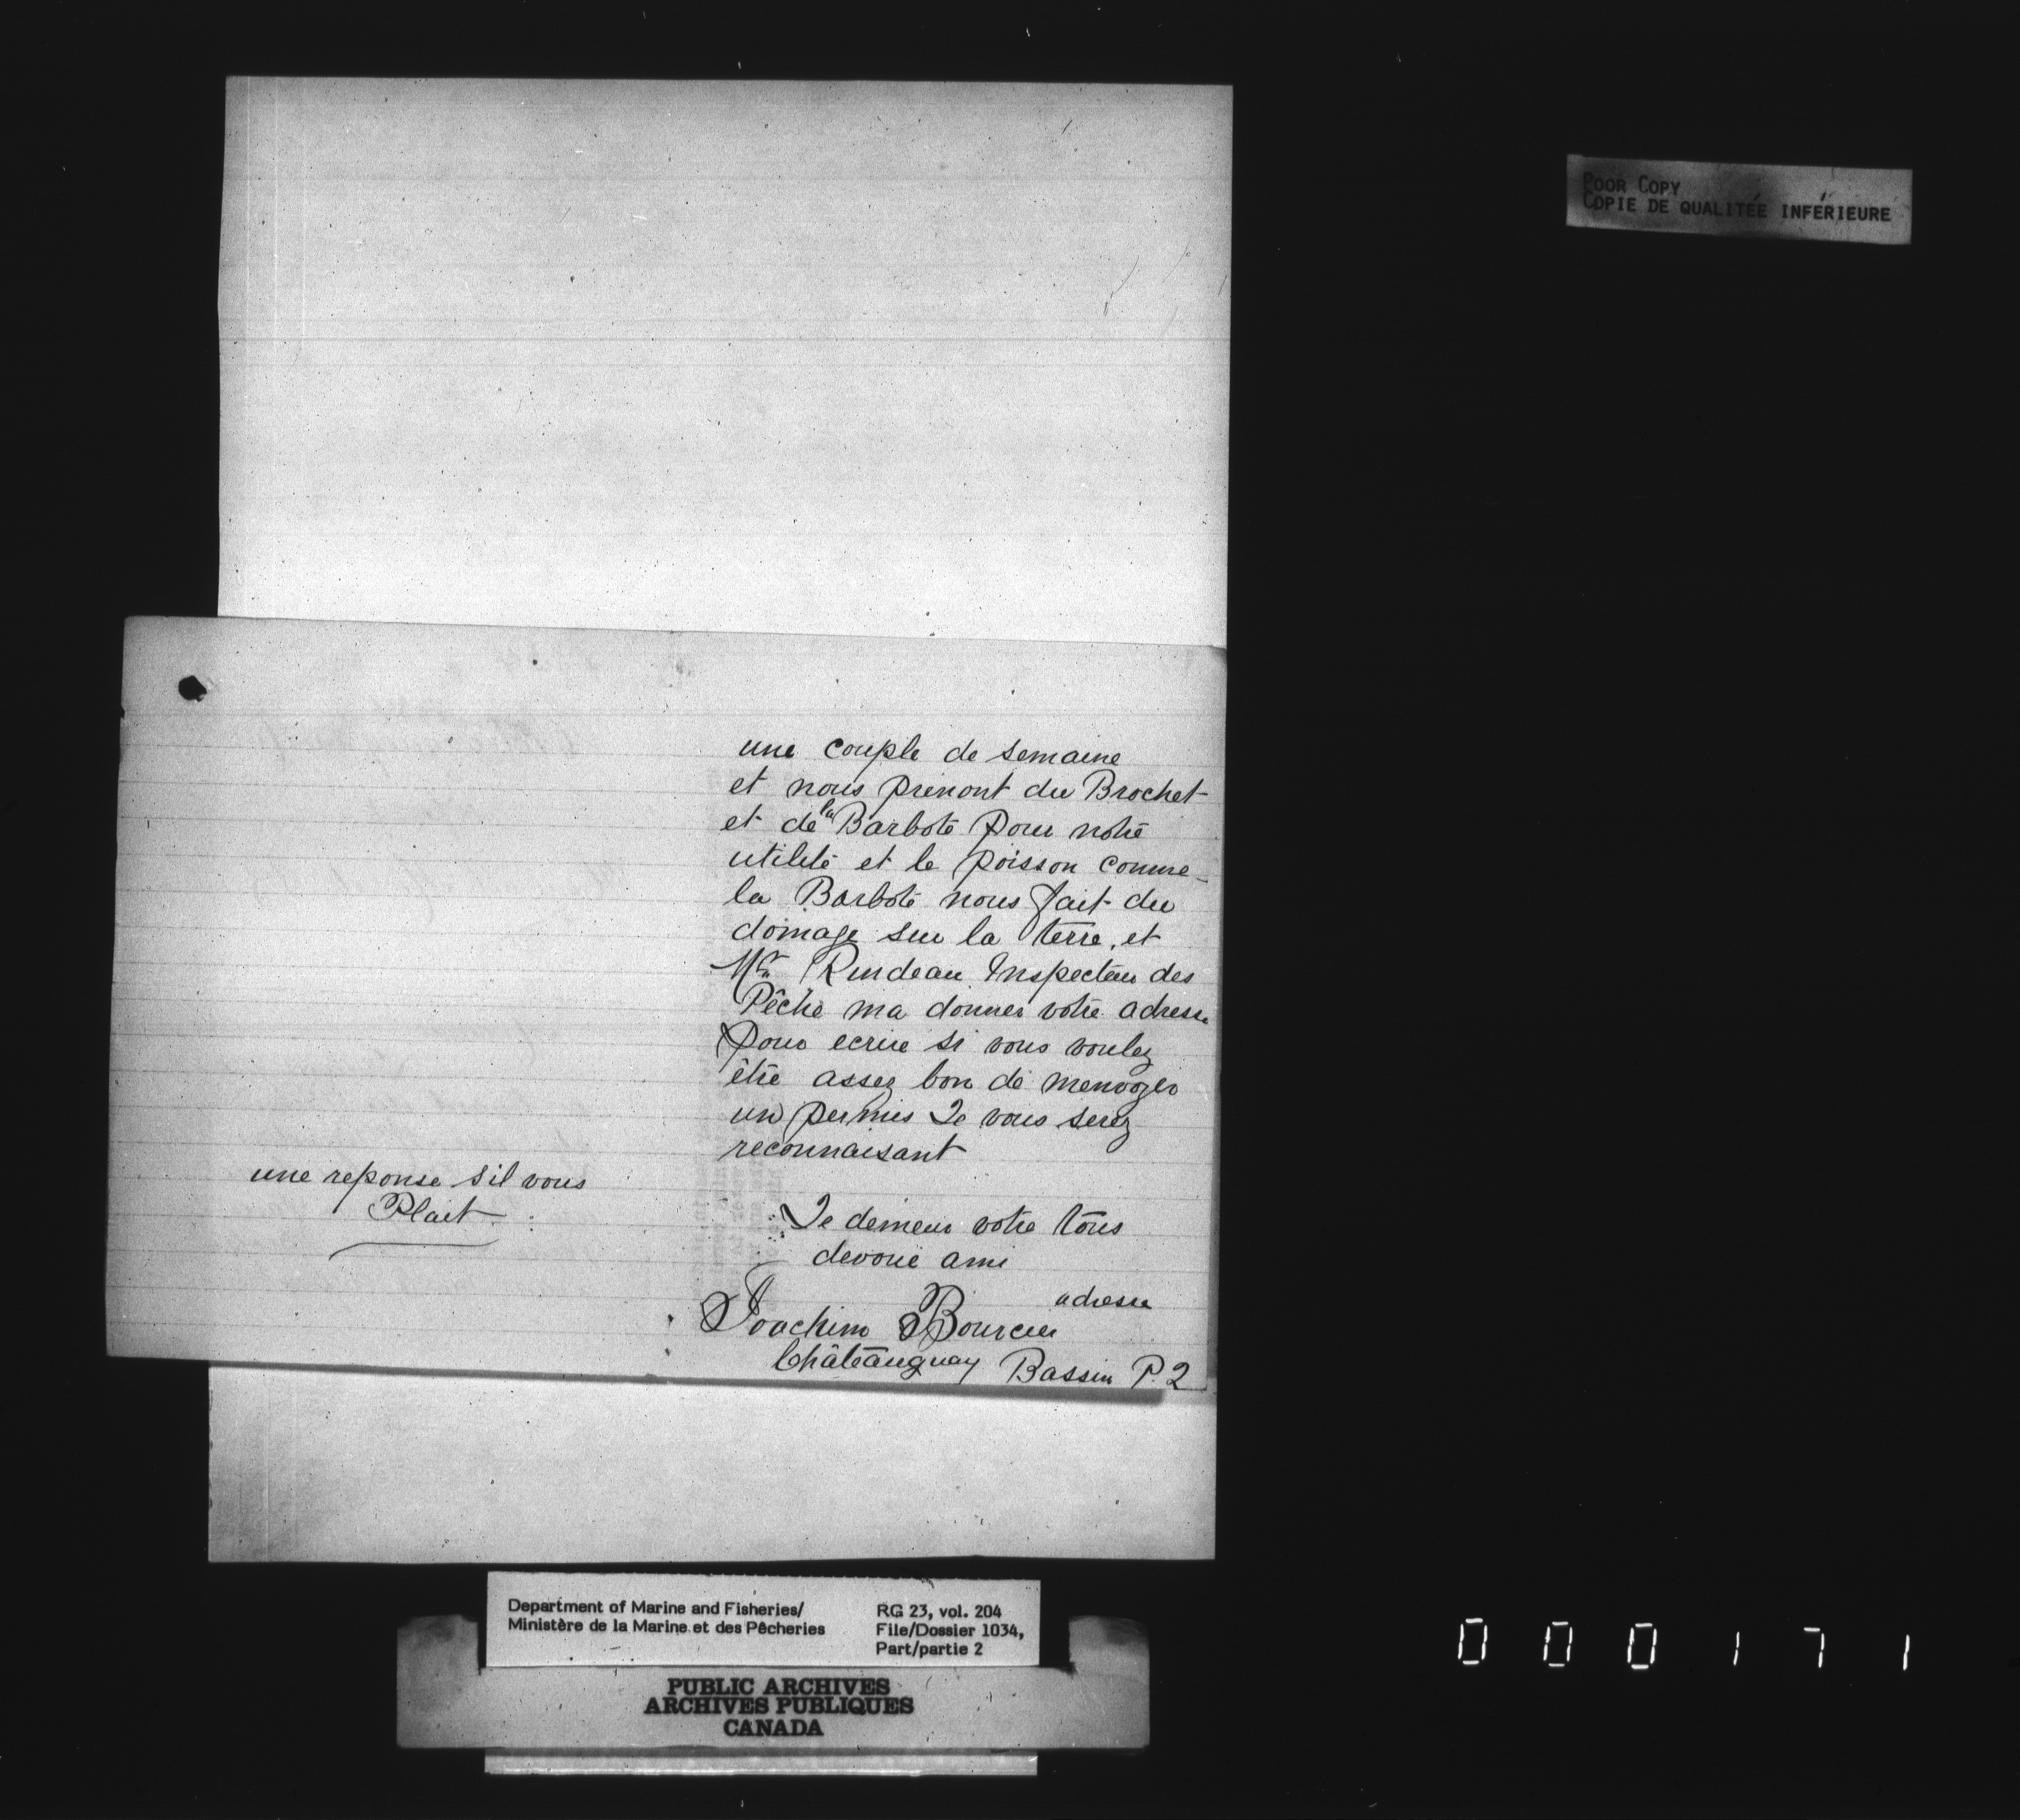 POOR COPY
COPIE DE QUALITÉE INFÉRIEURE
une couple de semaine
et nous prenont du Brochet
et de la Barbote pour notre
utilité et le poisson comme
la Barbote nous fait du
domage sur la terre, et
Mr Rindeau Inspecteur des
Pêche ma donner votre adresse
pour ecrire si vous voulez
être assez bon de menvoyer
un permis Je vous serez
reconnaisant
une reponse sil vous
Plait
Je demeur votre tous
devoué ami
adresse
Joachim Bourcier
Châteauguay Bassin P.2
Department of Marine and Fisheries/
Ministère de la Marine et des Pêcheries
RG 23, vol. 204
File/Dossier 1034,
Part/partie 2
PUBLIC ARCHIVES
ARCHIVES PUBLIQUES
CANADA
000171